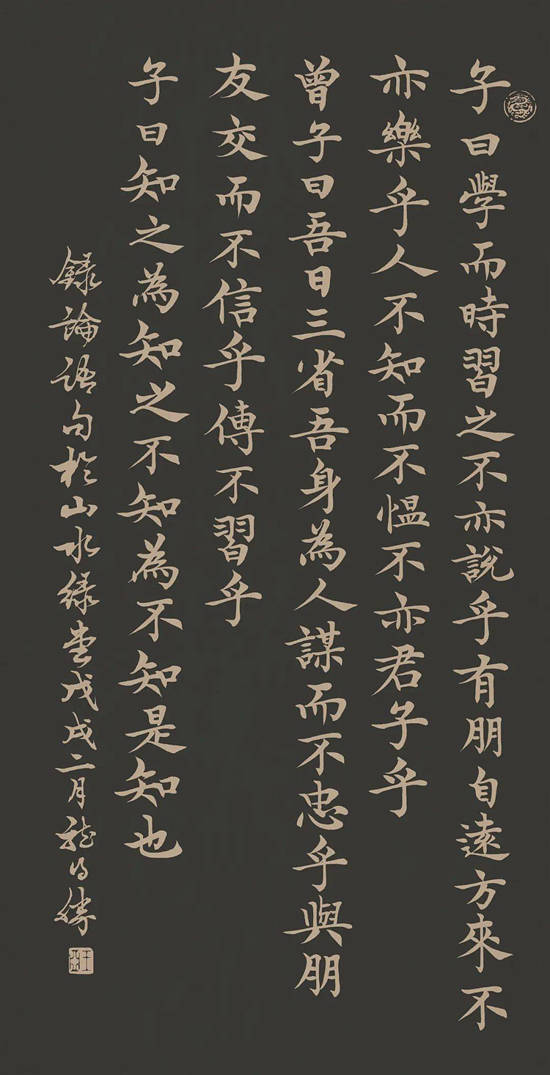 子曰學而時習之不亦說乎有朋自遠方來不
亦樂乎人不知而不慍不亦君子乎
曾子曰吾日三省吾身為人謀而不忠乎與朋
友交而不信乎傳不習乎
子曰知之為知之不知為不知是知也
録論語句於山水堂戊戌二月龍開勝